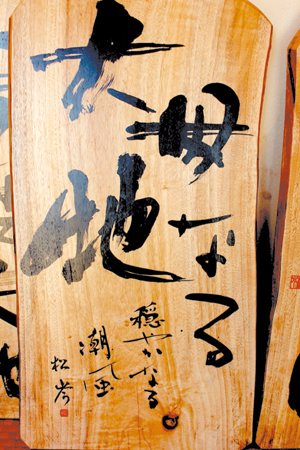 母なる
大地
穏やかなる
潮風
松岑